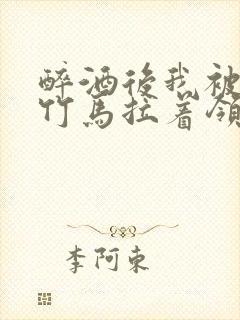 醉酒後我被
竹馬拉着領
李阿東